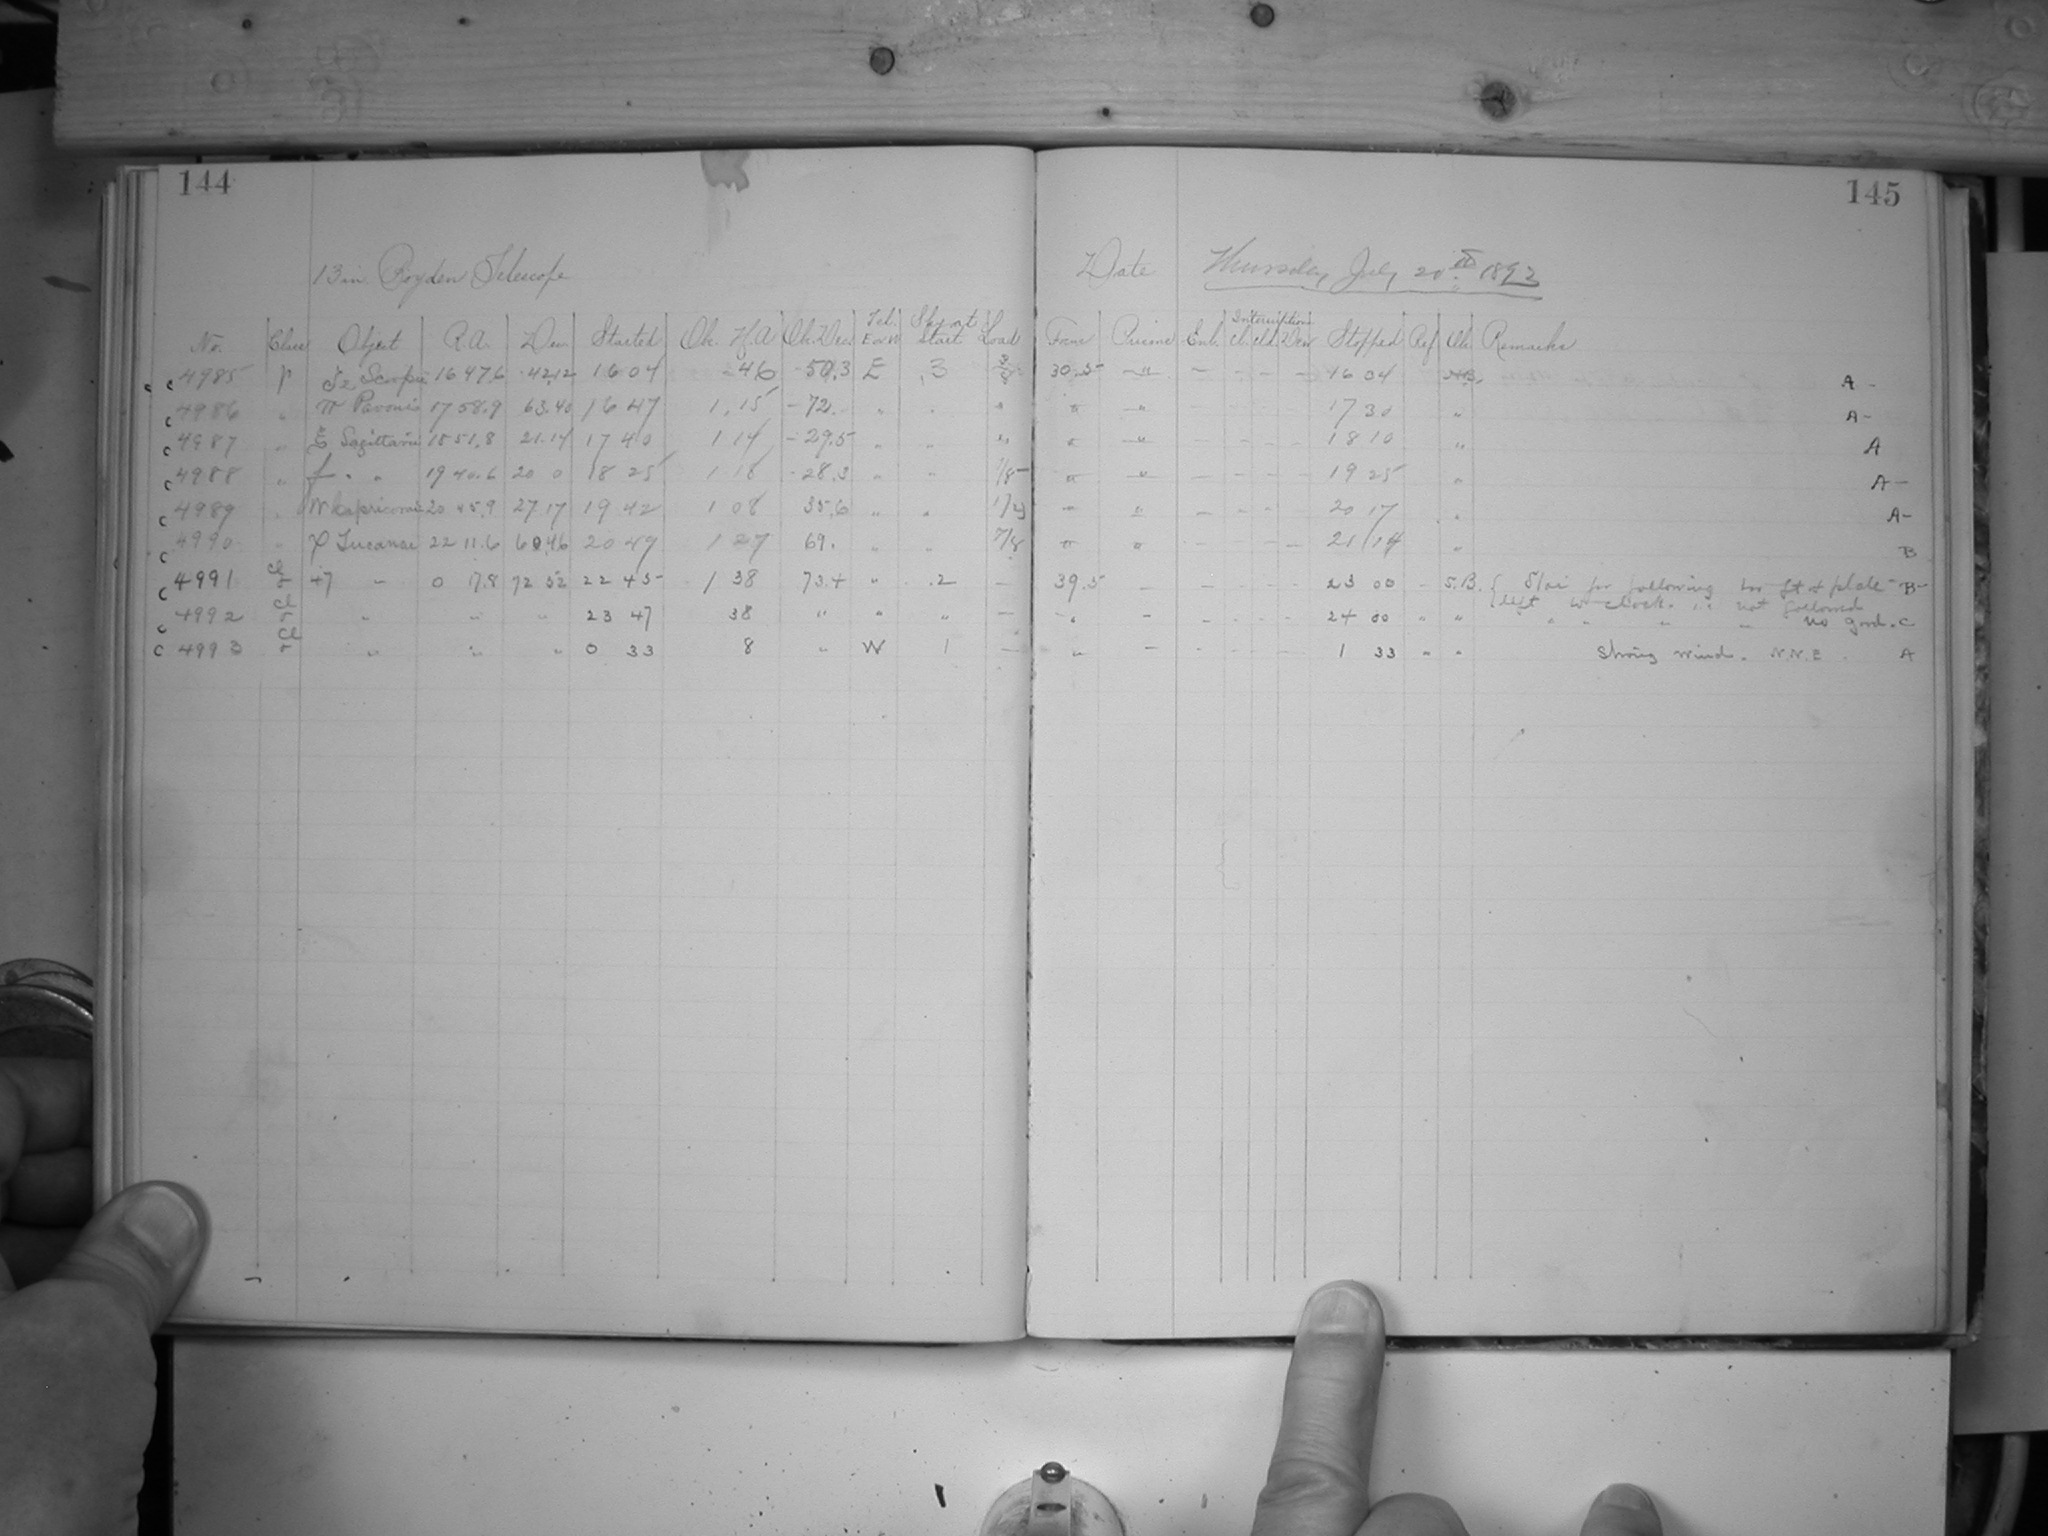 144
145
13 in. Boyden Telescope Date Thursday July 20th 1893
No. Class Object R.A. Dec. Started Ob. H.A. Ob. Dec. Tel. E or W Start Load Focus Prisms Interruptions Stopped Ref Ob. Remarks
4985 p Scorpii 16 47.6 42.12 16 04 46 -50.3 E .3 30.5 " — — — — 16 04 A-
4986 " π Pavonis 17 58.9 63.40 16 47 1.15 -72. " " " " " — — — — 17 30 " A-
4987 " ξ Sagittarii 18 51.8 21.14 17 40 1 14 -29.5 " " " " " — — — — 18 10 " A
4988 " f " " 19 40.6 20 0 18 25 1 18 -28.3 " " 7/8 " " — — — — 19 25 " A-
4989 " Capricorni 20 45.9 27.17 19 42 1 08 35.6 " " " " — — — — 20 17 " A-
4990 " Tucanae 22 11.6 60.46 20 49 1 27 69. " " 7/8 " " — — — — 21 14 " B
4991 Cl 47 " 0 17.8 72 52 22 45 1 38 73.4 " .2 — 39.5 — — — — — 23 00 - S.B. for following plate B-
left clock not followed
4992 Cl " " " 23 47 38 " " " — " — — — — — 24 00 " " " " " " no good. C
4993 Cl " " " 0 33 8 " W 1 — " — — — — — 1 33 " " Strong wind. N.N.E. A